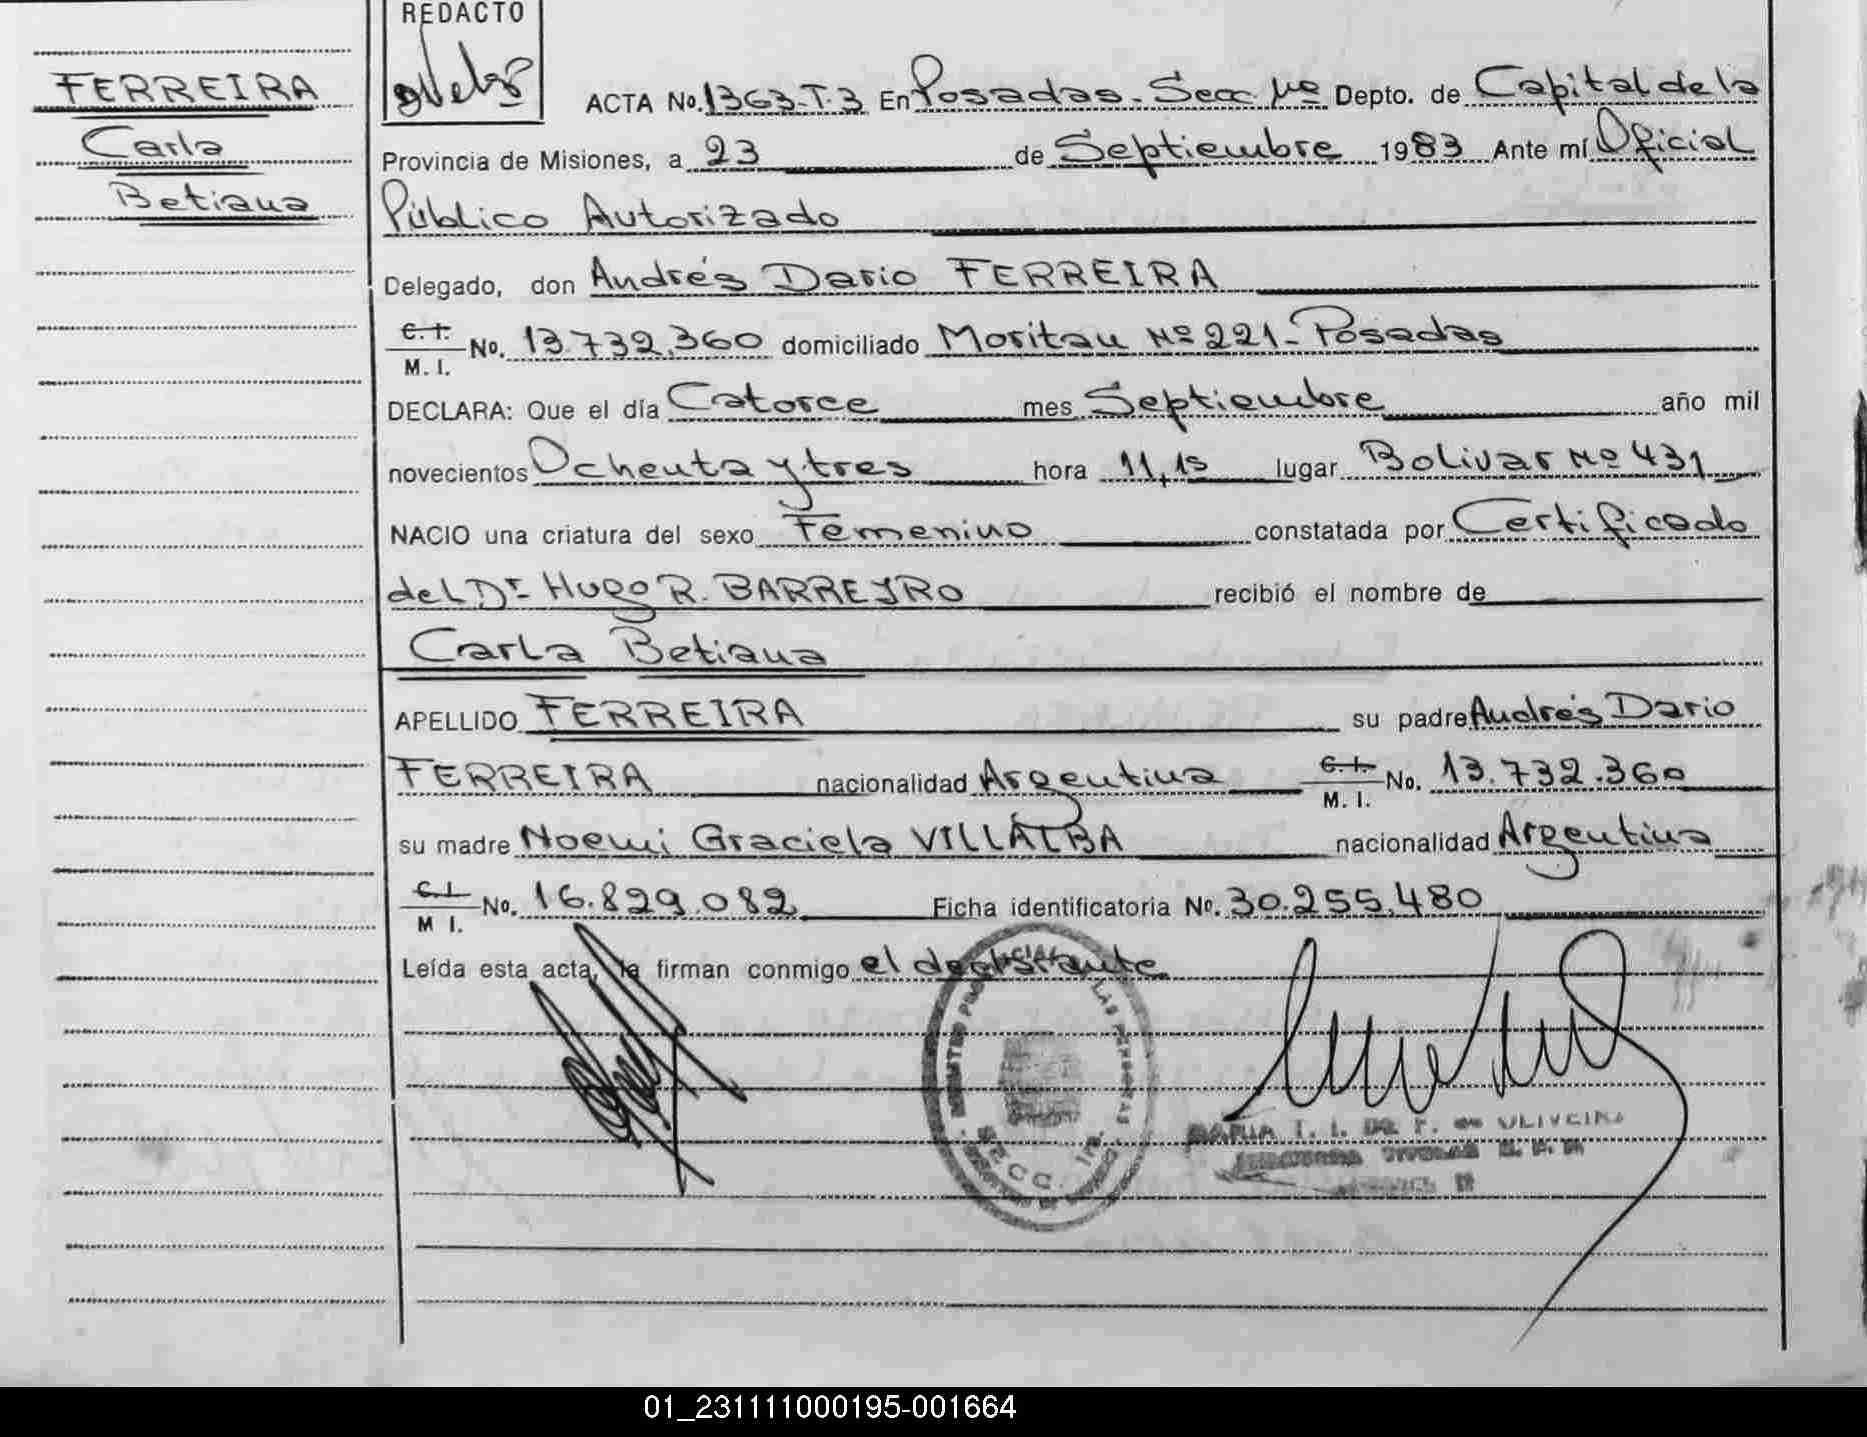 REDACTO
FERREIRA
Carla
Betiana
ACTA No. 1363-T.3 En Posadas - Secc. 1ra Depto. de Capital de la
Provincia de Misiones, a 23 de Septiembre 1983 Ante mí Oficial
Público Autorizado
Delegado, don Andrés Dario FERREIRA
C. I.
M. I. No. 13.732.360 domiciliado Moritan Nº 221 - Posadas
DECLARA: Que el día Catorce mes Septiembre año mil
novecientos Ochenta y tres hora 11,15 lugar Bolivar Nº 431
NACIO una criatura del sexo Femenino constatada por Certificado
del Dr. Hugo R. BARREYRO recibió el nombre de
Carla Betiana
APELLIDO FERREIRA su padre Andrés Dario
FERREIRA nacionalidad Argentina C. I. M. I. No. 13.732.360
su madre Noemi Graciela VILLALBA nacionalidad Argentina
C. I.
M I. No. 16.829.082 Ficha identificatoria No. 30.255.480
Leída esta acta, la firman conmigo el declarante
LAS PERSONAS
SECC. 1ra.
MARIA T. I. DE F. de OLIVEIRA
01_231111000195-001664